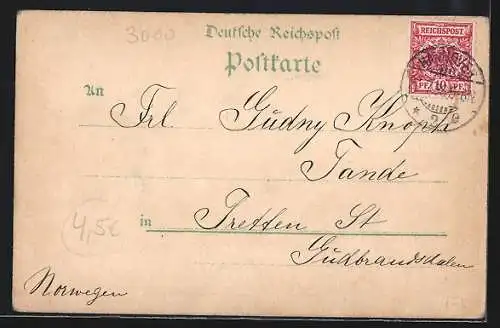 3000
Deutsche Reichspost
Postkarte
REICHSPOST
10
PF. PF.
HANNOVER
An
Frl Gudny Knoph
Tande
in Tretten St
Gudbrandsdalen
4,5€
Norwegen